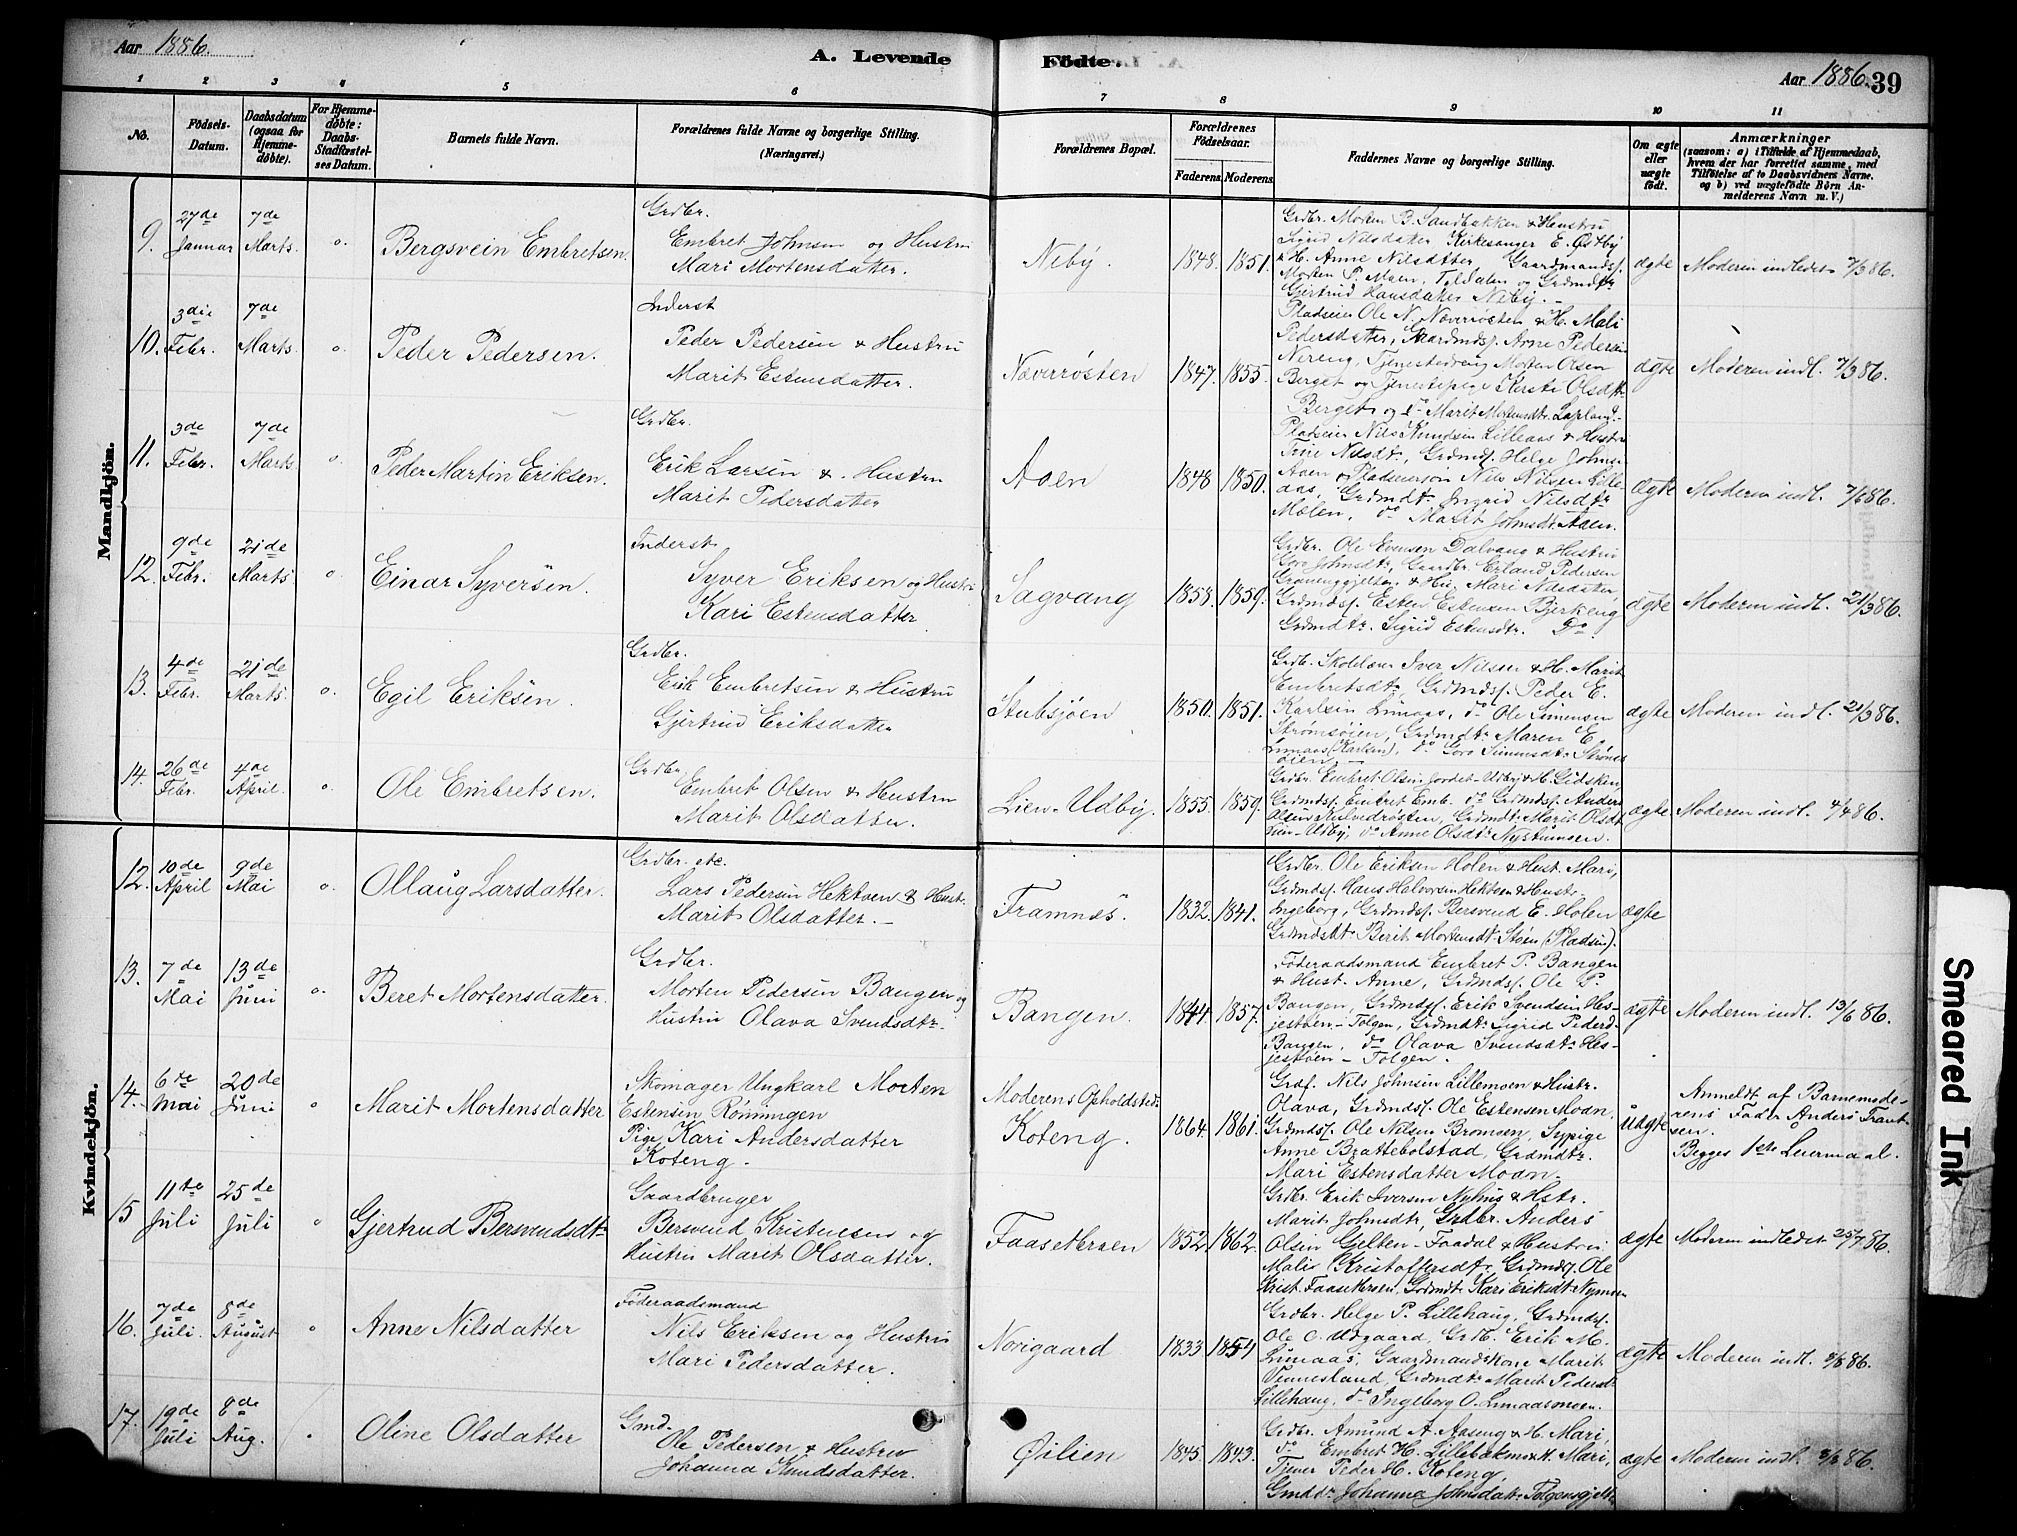 Aar 1886.
A. Levende
Födte.
Aar 1886. 39
1 2 3 4 5 6 7 8 9 10 11
No.
Födsels-
Datum.
Daabsdatum
(ogsaa for
Hjemme-
döbte).
For Hjemme-
döbte:
Daabs-
Stadfæstel-
ses Datum.
Barnets fulde Navn.
Forældrenes fulde Navne og borgerlige Stilling.
(Næringsvei.)
Forældrenes Bopæl.
Forældrenes
Födselsaar.
Faderens. Moderens.
Faddernes Navne og borgerlige Stilling.
Om ægte
eller
uægte
födt.
Anmærkninger
(saasom: a) i Tilfælde af Hjemmedaab,
hvem der har forrettet samme, med
Tilföielse af to Daabsvidners Navne.
og b) ved uægtefödte Börn An-
melderens Navn m. V.)
Mandkjön.
9.
27de
Januar
7de
Marts.
o.
Bergsvein Embretsen.
Grdbr.
Embret Johnsen og Hustru
Mari Mortensdatter.
Neby.
1848. 1851.
Grdbr. Morten B. Sandbakken & Hustru
Sigrid Nilsdatter Kirkesanger E. Østby
& H. Anne Nilsdatter Gaardmandsf.
Morten P. Moen, Tyldalen og Grdmdtr
Gjertrud Hansdatter Neby.
ægte
Moderen indledet 7/3 86.
10.
3die
Febr.
7de
Marts.
o.
Peder Pedersen.
Inderst
Peder Pedersen & Hustru
Marit Estensdatter.
Næverrösten
1847. 1855.
Pladseier Ole N. Næverrösten & H. Mali
Pedersdatter, Gaardmdsf. Arne Pedersen
Nereng, Tjenestedreng Morten Olsen
Berget og Tjenestepige Kersti Olsdtr
Berget og do Marit Mortensdtr. Lapland.
ægte
Moderen indl. 7/3 86.
11.
3de
Febr.
7de
Marts.
o.
Peder Martin Eriksen.
Grdbr.
Erik Larsen & Hustru
Marit Pedersdatter
Aaen
1848 1850.
Pladseier Nils Knudsen Lilleaas & Hustru
Trine Nilsdtr, Grdmdsf. Helge Johns.
Aaen og Pladseiersön Nils Nilsen Lille-
aas, Grdmdtr Ingrid Nilsdtr
Molen, do Marit Johnsdtr Aaen.
Ægte
Moderen indl. 7/3 86.
12.
9de
Febr.
21de
Marts
o.
Einar Syversen.
Inderst
Syver Eriksen og Hustru
Kari Estensdatter
Sagvang
1858. 1859.
Grdbr. Ole Evensen Dalvang & Hustru
Goro Johnsdtr, Gaardbr. Erland Pedersen
& Hu. Mari Nilsdatter
Grdmdsf. Esten Estensen Bjerkeng
Grdmdtr. Sigrid Estensdtr. Do.
ægte
Moderen indl. 21/3 86.
13.
4de
Febr.
21de
Marts.
o.
Egil Eriksen.
Grdbr.
Erik Embretsen & Hustru
Gjertrud Eriksdatter
Stubsjöen
1850. 1851.
Grdb. Skolelær. Iver Nilsen & H. Marit
Embretsdtr, Grdmdsf. Peder E.
Karlsen Limaas, do Ole Simensen
Strömsöien, Grdmdtr Maren E.
Limaas (Karlsen), do Goro Simensdtr Ströms
öien.
ægte
Moderen indl. 21/3 86.
14.
26de
Febr.
4de
April.
o.
Ole Embretsen.
Grdbr.
Embret Olsen & Hustru
Marit Olsdatter.
Lien-Udby.
1855. 1859.
Grdbr. Embret Olsen Jordet-Udby & H. Gidsken
Grdmdsf. Embret Emb. do Grdmdsf. Anders
Olsen Kulvedrösten, Grdmdtr. Marit Olsdtr
Lien-Udby, do Anne Olsdtr Nystumoen.
ægte.
Moderen indl. 4/4 86.
Kvindekjön.
12.
10de
April
9de
Mai
o.
Ollaug Larsdatter.
Grdbr. etc.
Lars Pedersen Hektoen & Hust.
Marit Olsdatter.
Framnes.
1832. 1841.
Grdbr. Ole Eriksen Holen & Hust. Mari,
Grdmdsf. Hans Halvorsen Hektoen & Hustr.
Ingeborg, Grdmdsf. Bersvend E. Holen
Grdmdsdtr Berit Mortensdtr Stöen (Pladsen).
ægte
13.
7de
Mai
13de
Juni
o.
Beret Mortensdatter.
Grdbr.
Morten Pedersen Bangen og
Hustru Olava Svendsdtr.
Bangen.
1844. 1857.
Föderaadsmand Embret P. Bangen
& Hust. Anne, Grdmdsf. Ole P.
Bangen, Grdmdsf. Erik Svendsen Hes-
jestöen - Tolgen, Grdmdtr Sigrid Pedersd.
Bangen, do Olava Svendsdtr Hes-
jestöen - Tolgen.
ægte
Moderen indl. 13/6 86.
14.
6te
Mai
20de
Juni
o
Marit Mortensdatter
Skomager Ungkarl Morten
Estensen Rönningen
Pige Kari Andersdatter
Koteng.
Moderens Opholdsted
Koteng.
1864. 1861.
Graf. Nils Johnsen Lillemoen & Hustr.
Olava, Grdmdsf. Ole Estensen Moan,
Grdmdsf. Ole Nilsen Bromoen, Sypige
Anne Brattebolstad, Grdmdtr.
Mari Estensdatter Moan.
Uægte
Anmeldt af Barnemode-
rens Fader Anders Frant-
sen.
Begges 1ste Leiermaal.
15
11te
Juli
25de
Juli
o
Gjertrud Bersvendsdtr
Gaardbruger
Bersvend Kristensen og
Hustru Marit Olsdatter.
Faasetbroen
1852. 1862.
Grdbr. Erik Iversen Nyhus & Hstr.
Marit Johnsdtr, Grdbr. Anders
Olsen Gjelten - Faadal & Hustru
Mali Kristoffersdtr, Grdmdsf. Ole
Krist. Faasetbroen, Grdmdtr Kari Eriksdtr Nymoen
ægte
Moderen indledet 25/7 86.
16.
7de
Juli.
8de
August
o
Anne Nilsdatter
Föderaadsmand
Nils Eriksen og Hustru
Mari Pedersdatter.
Norigaard
1833. 1854
Grdbr. Helge P. Lillehaug, Grdmdsf.
Ole C. Udgaard, Grdb. Erik M.
Limaas, Gaardmandskone Marit
Vinnesland, Grdmdtr Marit Pedersdtr
Lillehaug, do Ingeborg O. Limaasmoen.
ægte
Moderen indl. 8/8 86.
17.
19de
Juli
8de
Aug.
Oline Olsdatter
Gmd.
Ole Pedersen & Hustru
Johanna Knudsdatter.
Øilien
1845. 1843.
Grdbr. Amund A. Aaseng & H. Mari,
do Embret H. Lillebakmo & H. Mari,
Tjener Peder H. Koteng,
Gmddtr. Johanna Johnsdatr Tolgensgjelten
ægte
Moderen indl 8/8 86.
Smeared Ink